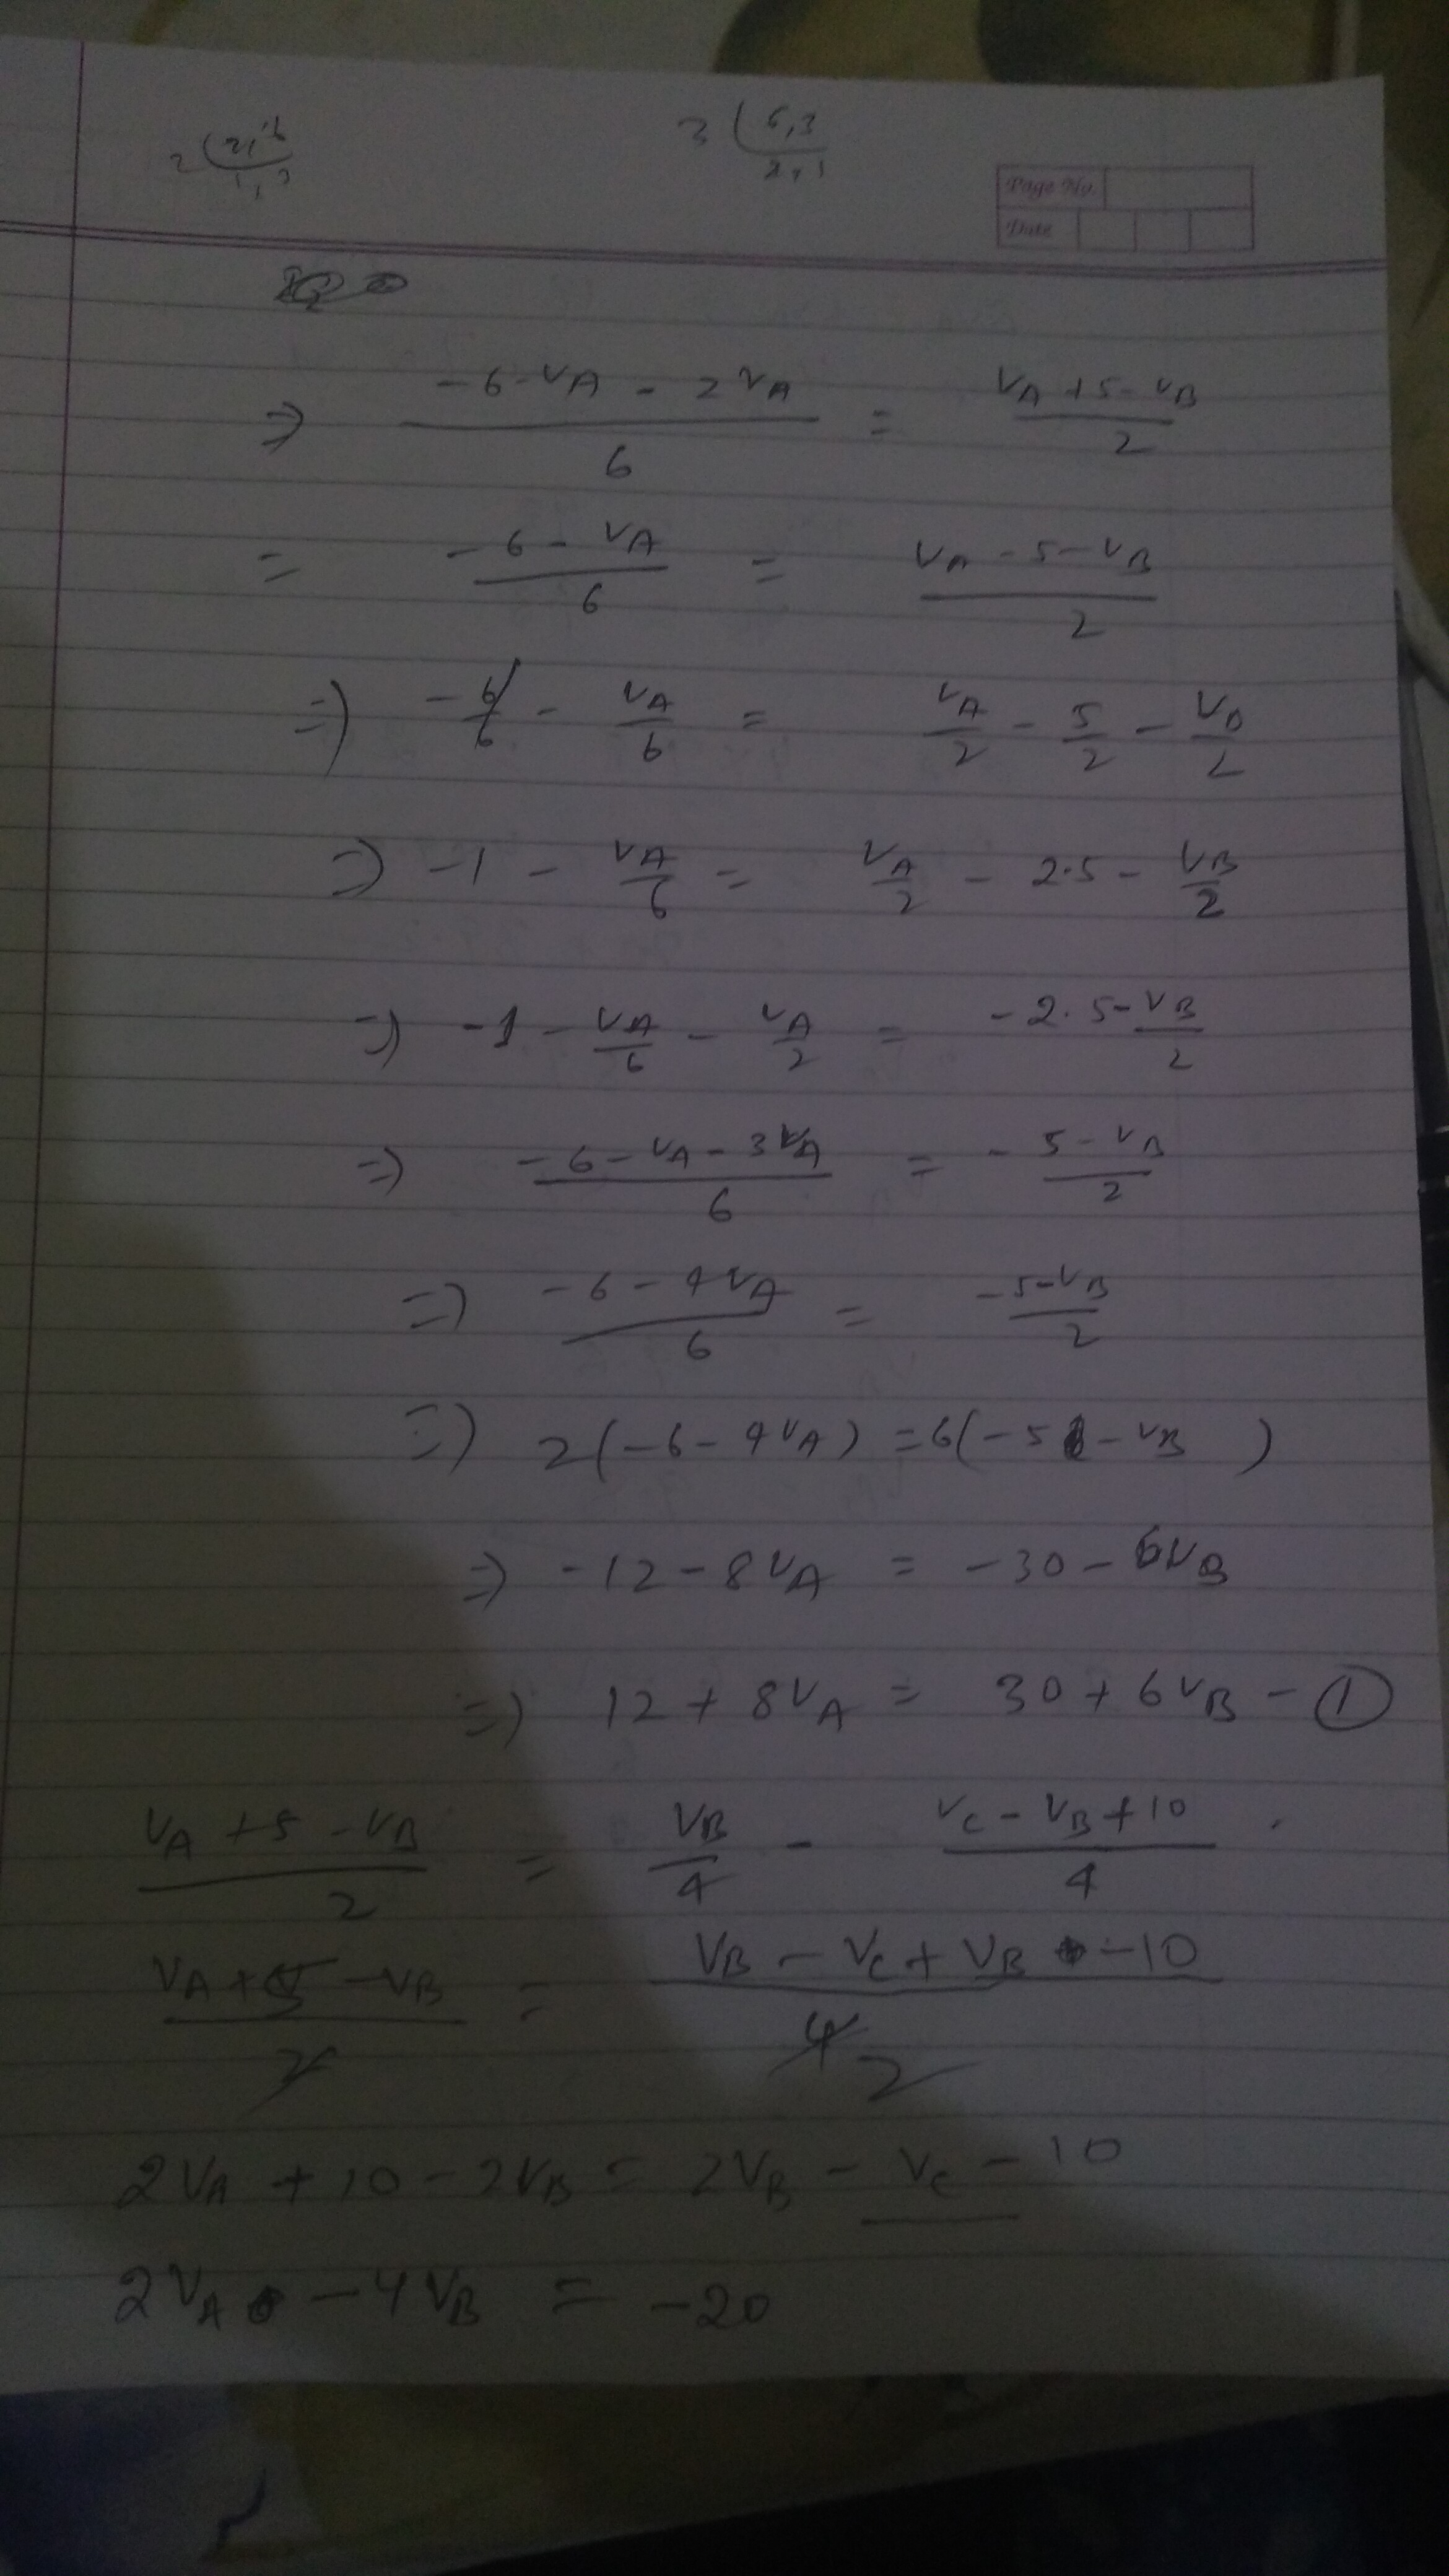 2 ( 2, 6
1, 3
3 ( 6, 3
2, 1
Page No.
Date
⇒ (-6 - VA - 2VA)/6 = (VA + 5 - VB)/2
= (-6 - VA)/6 = (VA - 5 - VB)/2
⇒ -6/6 - VA/6 = VA/2 - 5/2 - VB/2
⇒ -1 - VA/6 = VA/2 - 2.5 - VB/2
⇒ -1 - VA/6 - VA/2 = -2.5 - VB/2
⇒ (-6 - VA - 3VA)/6 = - (5 - VB)/2
⇒ (-6 - 4VA)/6 = (-5 - VB)/2
⇒ 2(-6 - 4VA) = 6(-5 - VB)
⇒ -12 - 8VA = -30 - 6VB
⇒ 12 + 8VA = 30 + 6VB - ①
(VA + 5 - VB)/2 = VB/4 - (VC - VB + 10)/4
(VA + 5 - VB)/2 = (VB - VC + VB - 10)/4 2
2VA + 10 - 2VB = 2VB - VC - 10
2VA - 4VB = -20